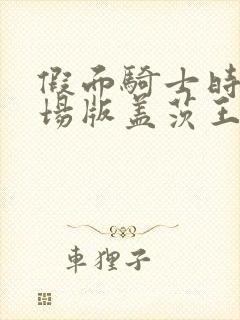 假面騎士時
場版盖茨王
車狸子